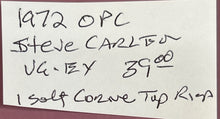 1972 OPC
Steve CARLTON
VG-EX 39.00
1 Soft Corner Top Right